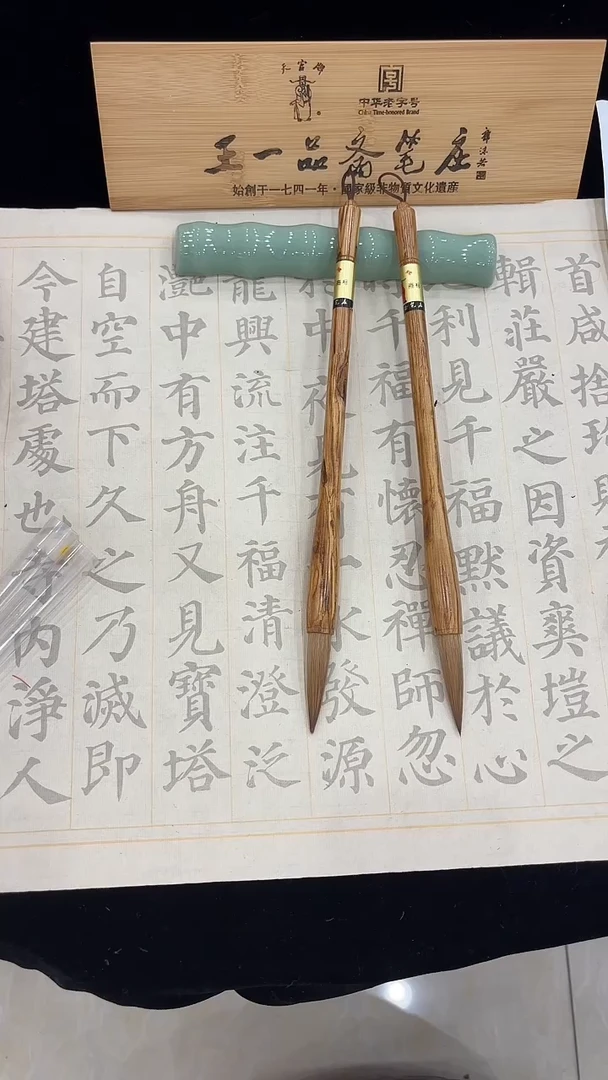 中华老字号
China Time-honored Brand
王一品斋笔庄
始創于一七四一年·國家級非物質文化遺産
首咸捨珎
輯莊嚴之因資爽塏之
利見千福默議於心
千福有懷忍禪師忽
於中夜見有一水發源
龍興流注千福清澄泛
灧中有方舟又見寶塔
自空而下久之乃滅即
今建塔處也寺內淨人